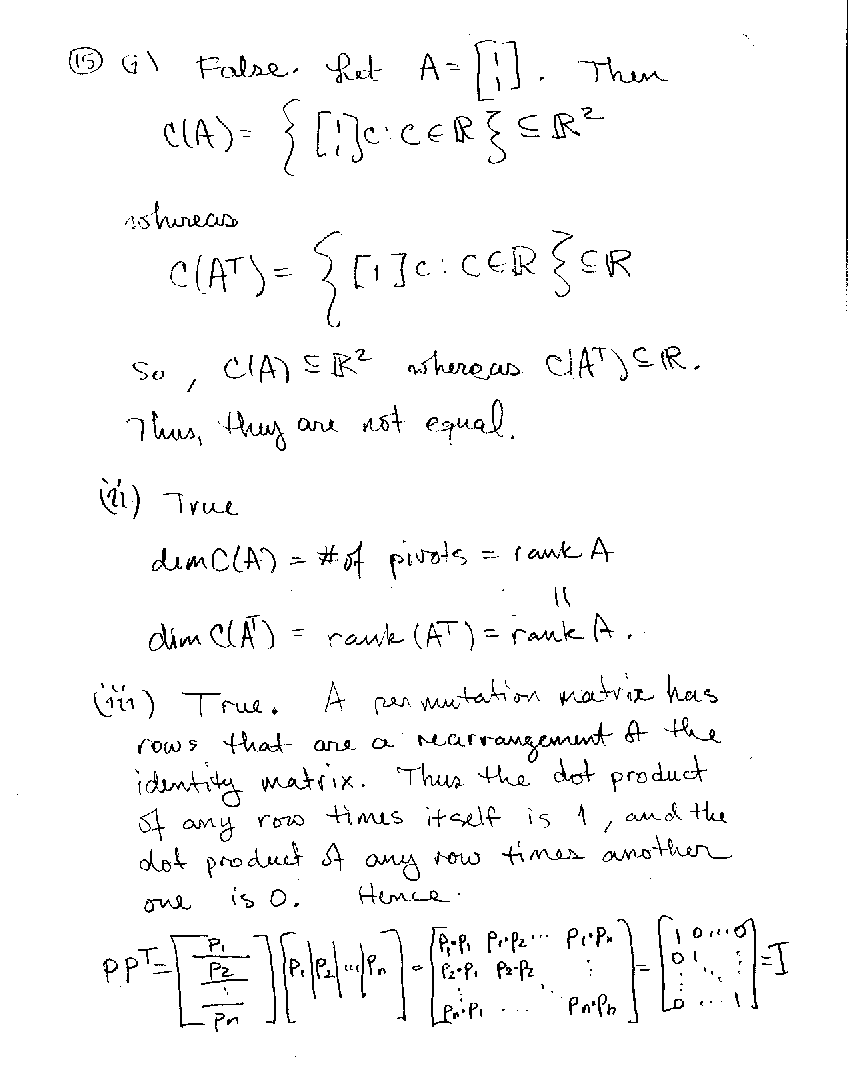 ⑮ (i) False. Let A = [1 1]. Then
C(A) = { [1 1] c : c ∈ ℝ } ⊆ ℝ²
whereas
C(Aᵀ) = { [1] c : c ∈ ℝ } ⊆ ℝ
So, C(A) ⊆ ℝ² whereas C(Aᵀ) ⊆ ℝ.
Thus, they are not equal.
(ii) True
dim C(A) = # of pivots = rank A
||
dim C(Aᵀ) = rank (Aᵀ) = rank A.
(iii) True. A permutation matrix has
rows that are a rearrangement of the
identity matrix. Thus the dot product
of any row times itself is 1, and the
dot product of any row times another
one is 0. Hence
PPᵀ = [p₁ / p₂ / ⋮ / pₙ] [p₁ | p₂ | ... | pₙ] = [p₁·p₁ p₁·p₂ ... p₁·pₙ / p₂·p₁ p₂·p₂ ⋮ / ⋮ ⋱ / pₙ·p₁ ... pₙ·pₙ] = [1 0 ... 0 / 0 1 ⋮ / ⋮ ⋱ ⋮ / 0 ... 1] = I